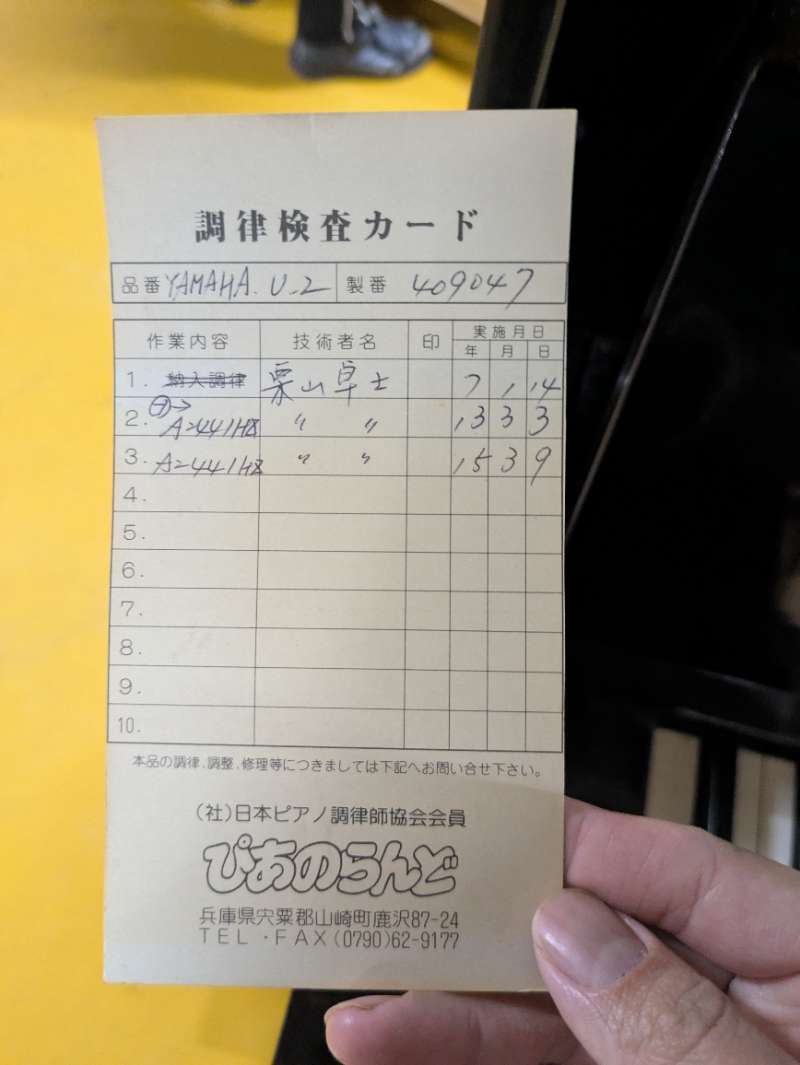 調律検査カード
品番 YAMAHA. U-2 製番 409047
作業内容 技術者名 印 実施月日
年 月 日
1. 納入調律 栗山卓士 7 1 14
2. A=441HZ 〃 〃 13 3 3
3. A=441HZ 〃 〃 15 3 9
4.
5.
6.
7.
8.
9.
10.
本品の調律、調整、修理等につきましては下記へお問い合せ下さい。
(社)日本ピアノ調律師協会会員
ぴあのらんど
兵庫県宍粟郡山崎町鹿沢87-24
TEL・FAX(0790)62-9177